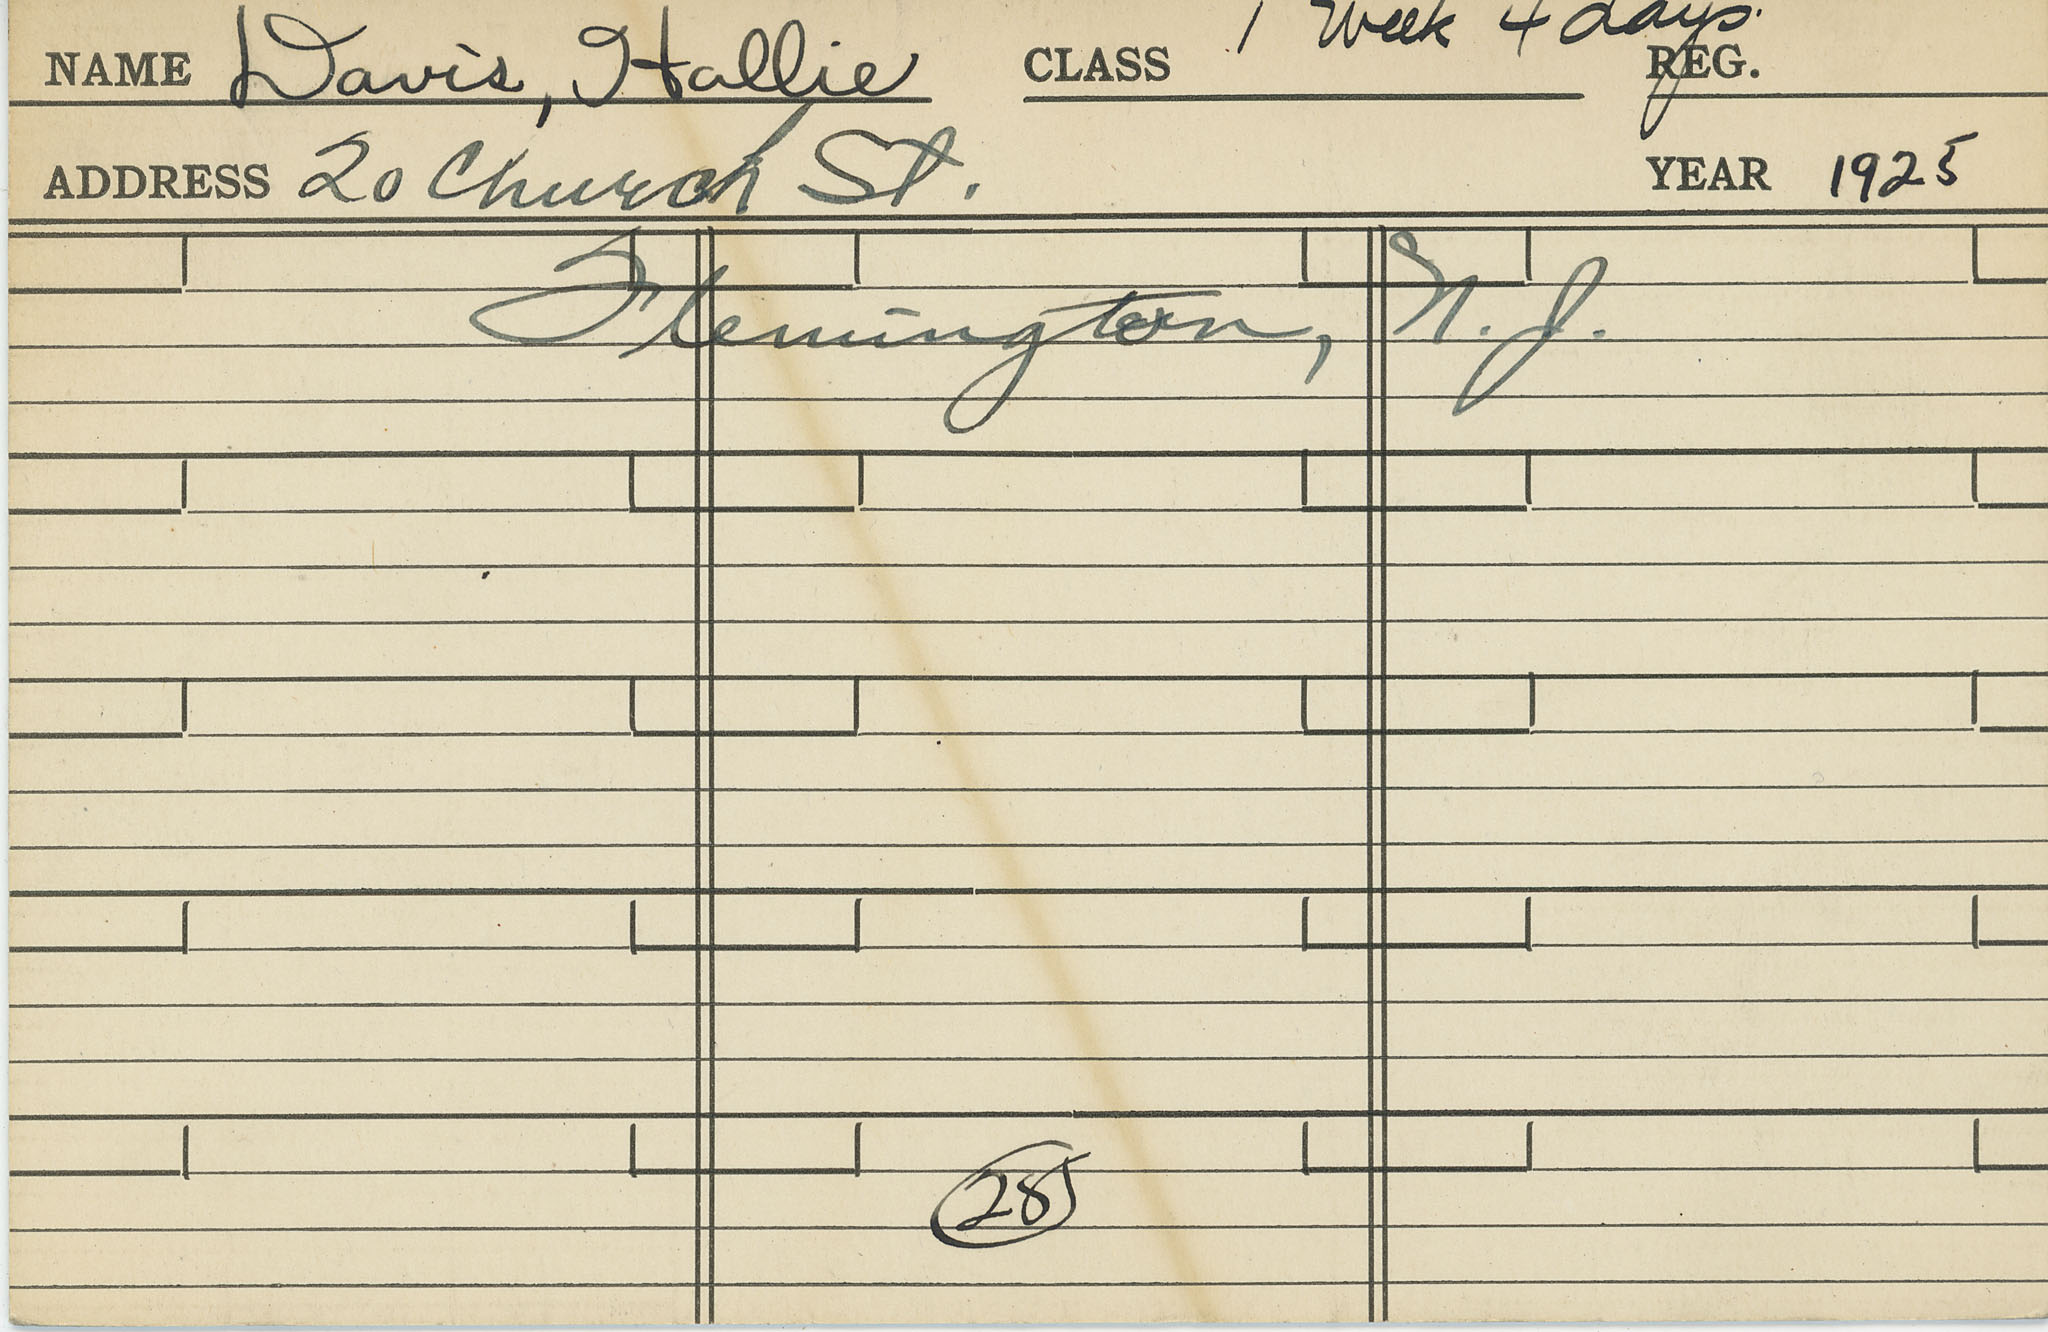 1 Week 4 days.
NAME Davis, Hallie CLASS REG.
ADDRESS 20 Church St. YEAR 1925
Flemington, N.J.
285